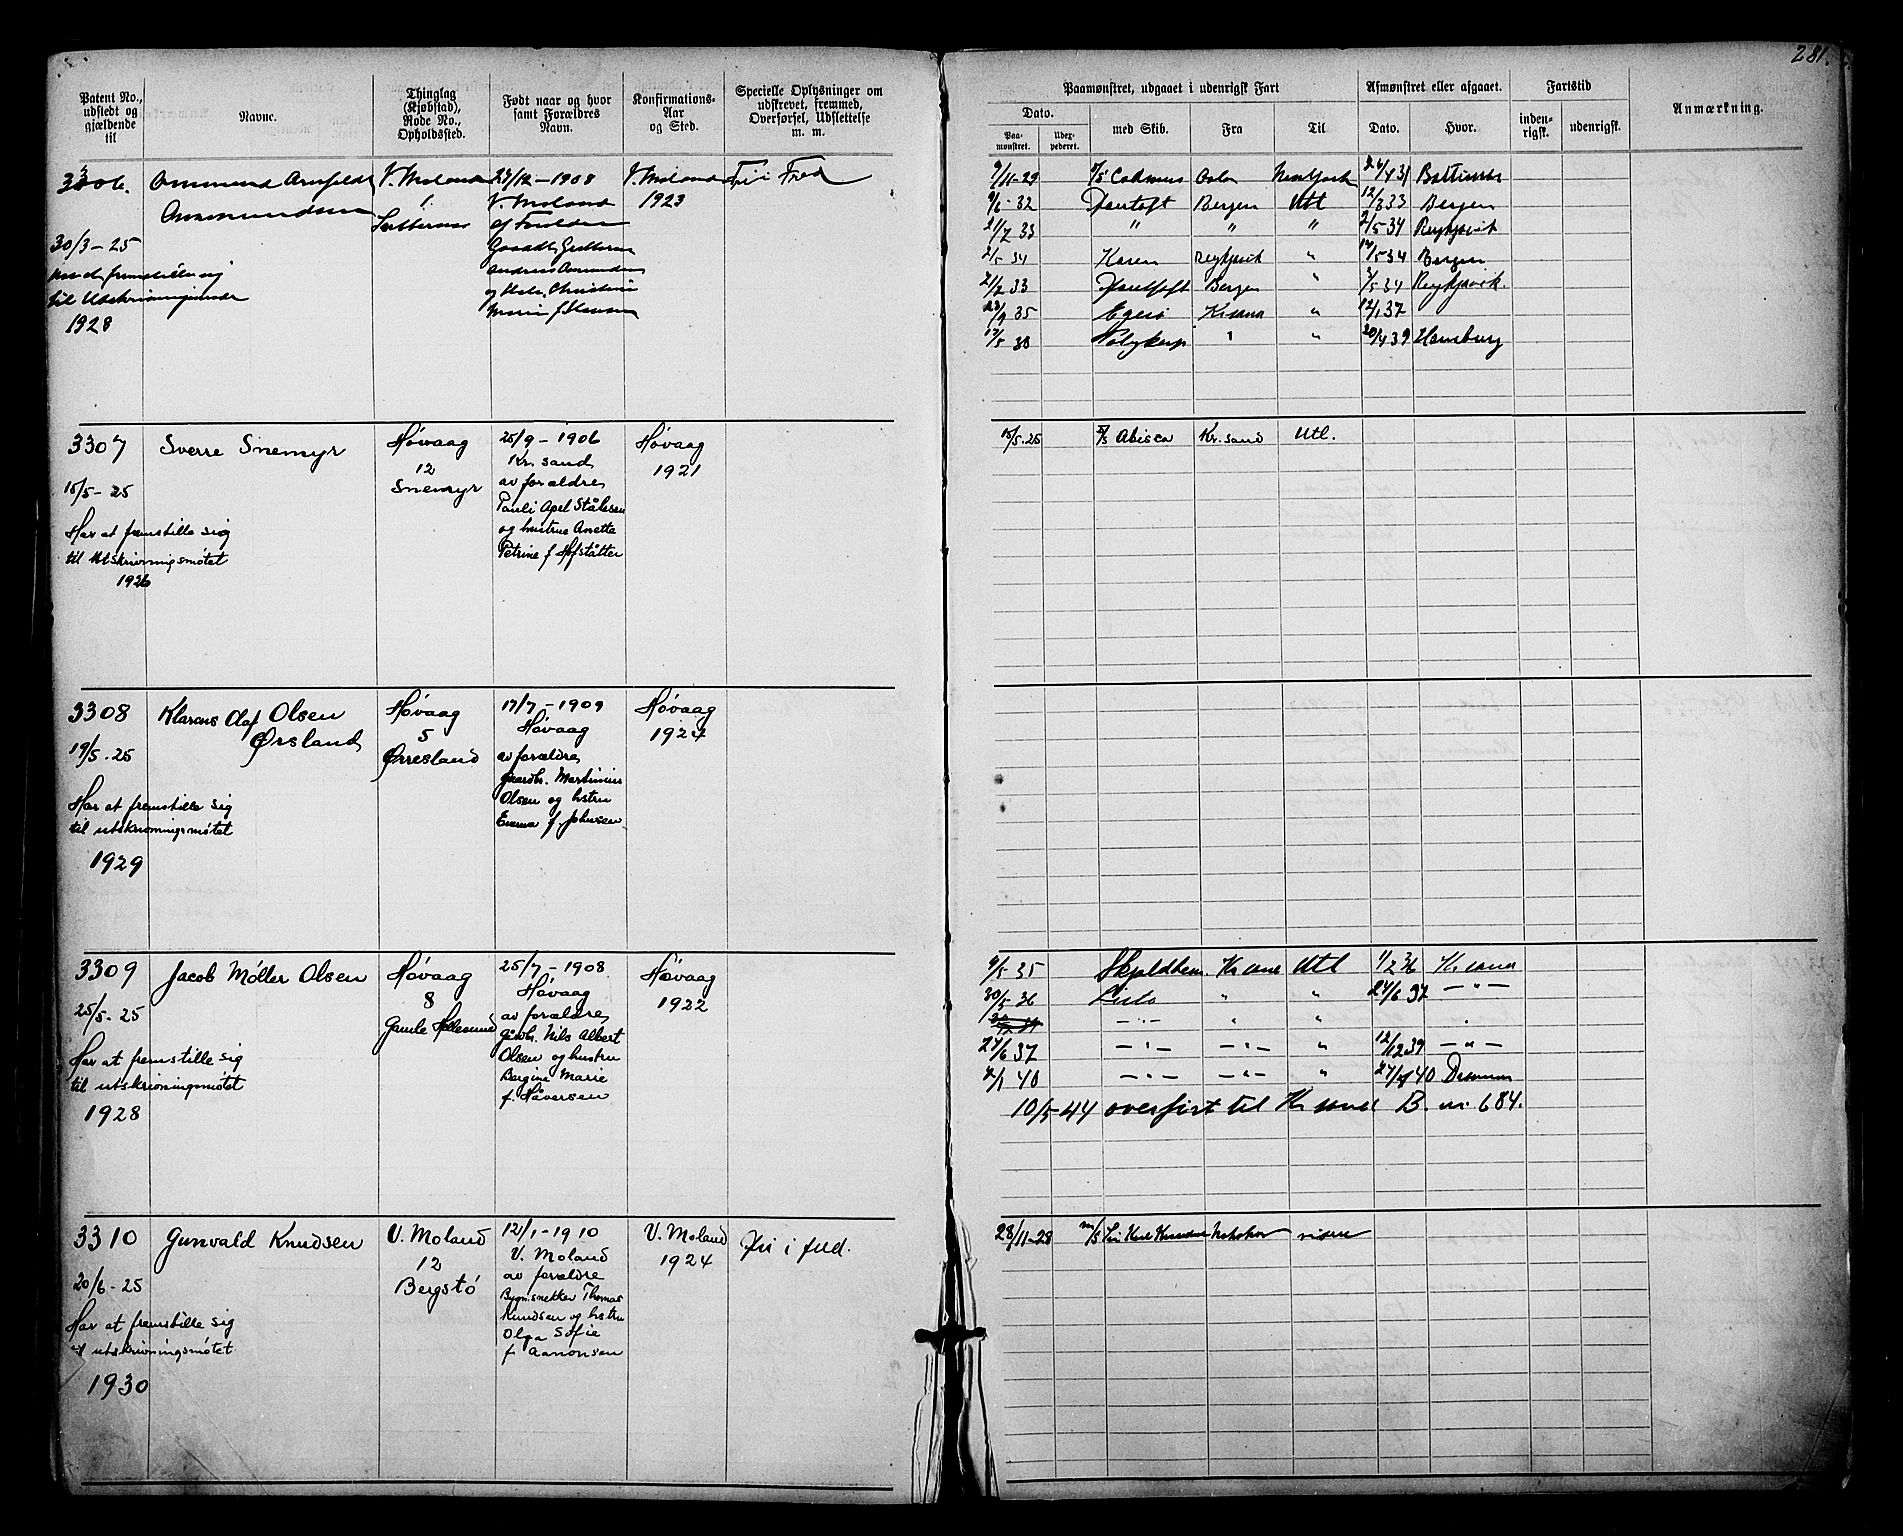 281.
Patent No., udstedt og gjældende til
Navne.
Thinglag (Kjøbstad), Rode No., Opholdssted.
Født naar og hvor samt Forældres Navn.
Konfirmations-Aar og Sted.
Specielle Oplysninger om udskrevet, fremmed, Overførsel, Udslettelse m. m.
Paamønstret, udgaaet i udenrigsk Fart
Dato.
Paa-mønstret.
Udex-pederet.
med Skib.
Fra
Til
Afmønstret eller afgaaet.
Dato.
Hvor.
Fartstid
inden-rigsk.
udenrigsk.
Anmærkning.
3306.
30/3-25
til Utskrivningsmøde
1928
Ommund Arnfeldt
Ommundsen
V. Moland
1
29/12-1908
V. Moland
af Forældre
Andreas Ommundsen
V. Moland
1923
Fri i Fred
9/11-29 Cadmus Oslo
9/6-32 Fantoft Bergen Utl 12/3 33 Bergen
21/7 33 " " " 2/5-34 Reykjavik
2/5 34 Karen Reykjavik " 14/5-34 Bergen
21/7 33 Fantoft Bergen " 2/5 34 Reykjavik.
23/9 35 Kr.sand " 12/1 37
17/5 38 " " 20/4 39 Hamburg
3307
15/5-25
Har at fremstille sig
til Utskrivningsmøtet
1926
Sverre Snemyr
Høvaag
12
Snemyr
25/9-1906
Kr. sand
av forældre
Pauli Apel Stålesen
og hustru Anette
Petrine f. Hofstätter
Høvaag
1921
15/5-25 Abisco Kr. sand Utl.
3308
19/5-25
Har at fremstille sig
til utskrivningsmøtet
1929
Klarens Olaf Olsen
Ørsland
Høvaag
5
Ørresland
17/7-1909
Høvaag
av forældre
gaardbr. Martinius
Olsen og hstru
Emma f. Johnsen
Høvaag
1924
3309
25/5-25
Har at fremstille sig
til utskrivningsmøtet
1928
Jacob Møller Olsen
Høvaag
8
Gamle Hellesund
25/7-1908
Høvaag
av forældre
gårdbr. Nils Albert
Olsen og hustru
Bergine Marie
f. Håversen
Høvaag
1922
9/5 35 Skjoldheim Kr. sand Utl 1/2 36 Kr. sand
30/5 36 " " 24/6 37 -"-
-"- " "
24/6 37 -"- -"- " 12/12 39 -"-
2/1 40 -"- -"- " Drammen
10/5-44 overført til Kr sand B. nr. 684.
3310
20/6-25
Har at fremstille sig
til utskrivningsmøtet
1930
Gunvald Knudsen
V. Moland
12
Bergstø
12/1-1910
V. Moland
av forældre
Bygn.snekker Thomas
Knudsen og hstru
Olga Sofie
f. Aanonsen
V. Moland
1924
Fri i fred.
28/11-28 m/s Knudsen